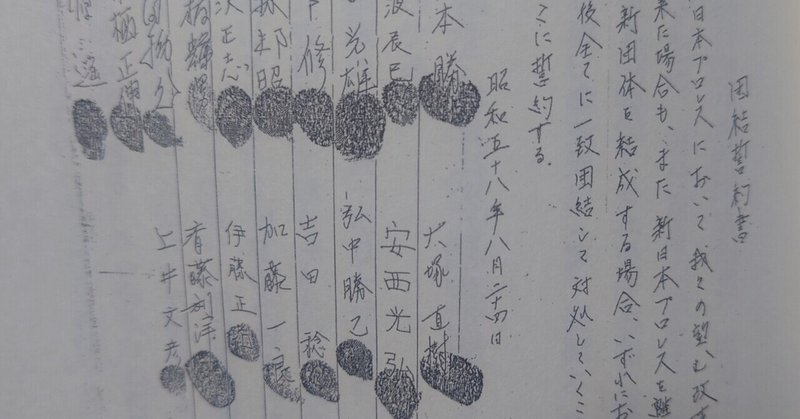 団結誓約書
日本プロレスにおいて、我々の望む改
来た場合も、また新日本プロレスを離
新団体を結成する場合、いずれにお
後全てに一致団結して対処していくこ
こに誓約する。
昭和五十八年八月二十四日
本 勝
波辰巳
光雄
修
林邦昭
正志
橋輝男
栖正伸
大塚直樹
安西光弘
弘中勝己
吉田稔
加藤一良
伊藤正治
斉藤利洋
上井文彦